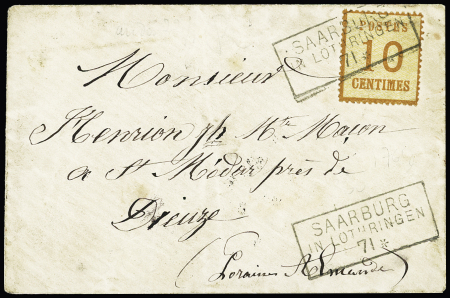 SAARBURG
IN LOTHRINGEN
71*
POSTES
10
CENTIMES
Monsieur
Henrion ph Mte Maçon
a St Médar près de
Dieuze
(Loraine Almande)
SAARBURG
IN LOTHRINGEN
71*